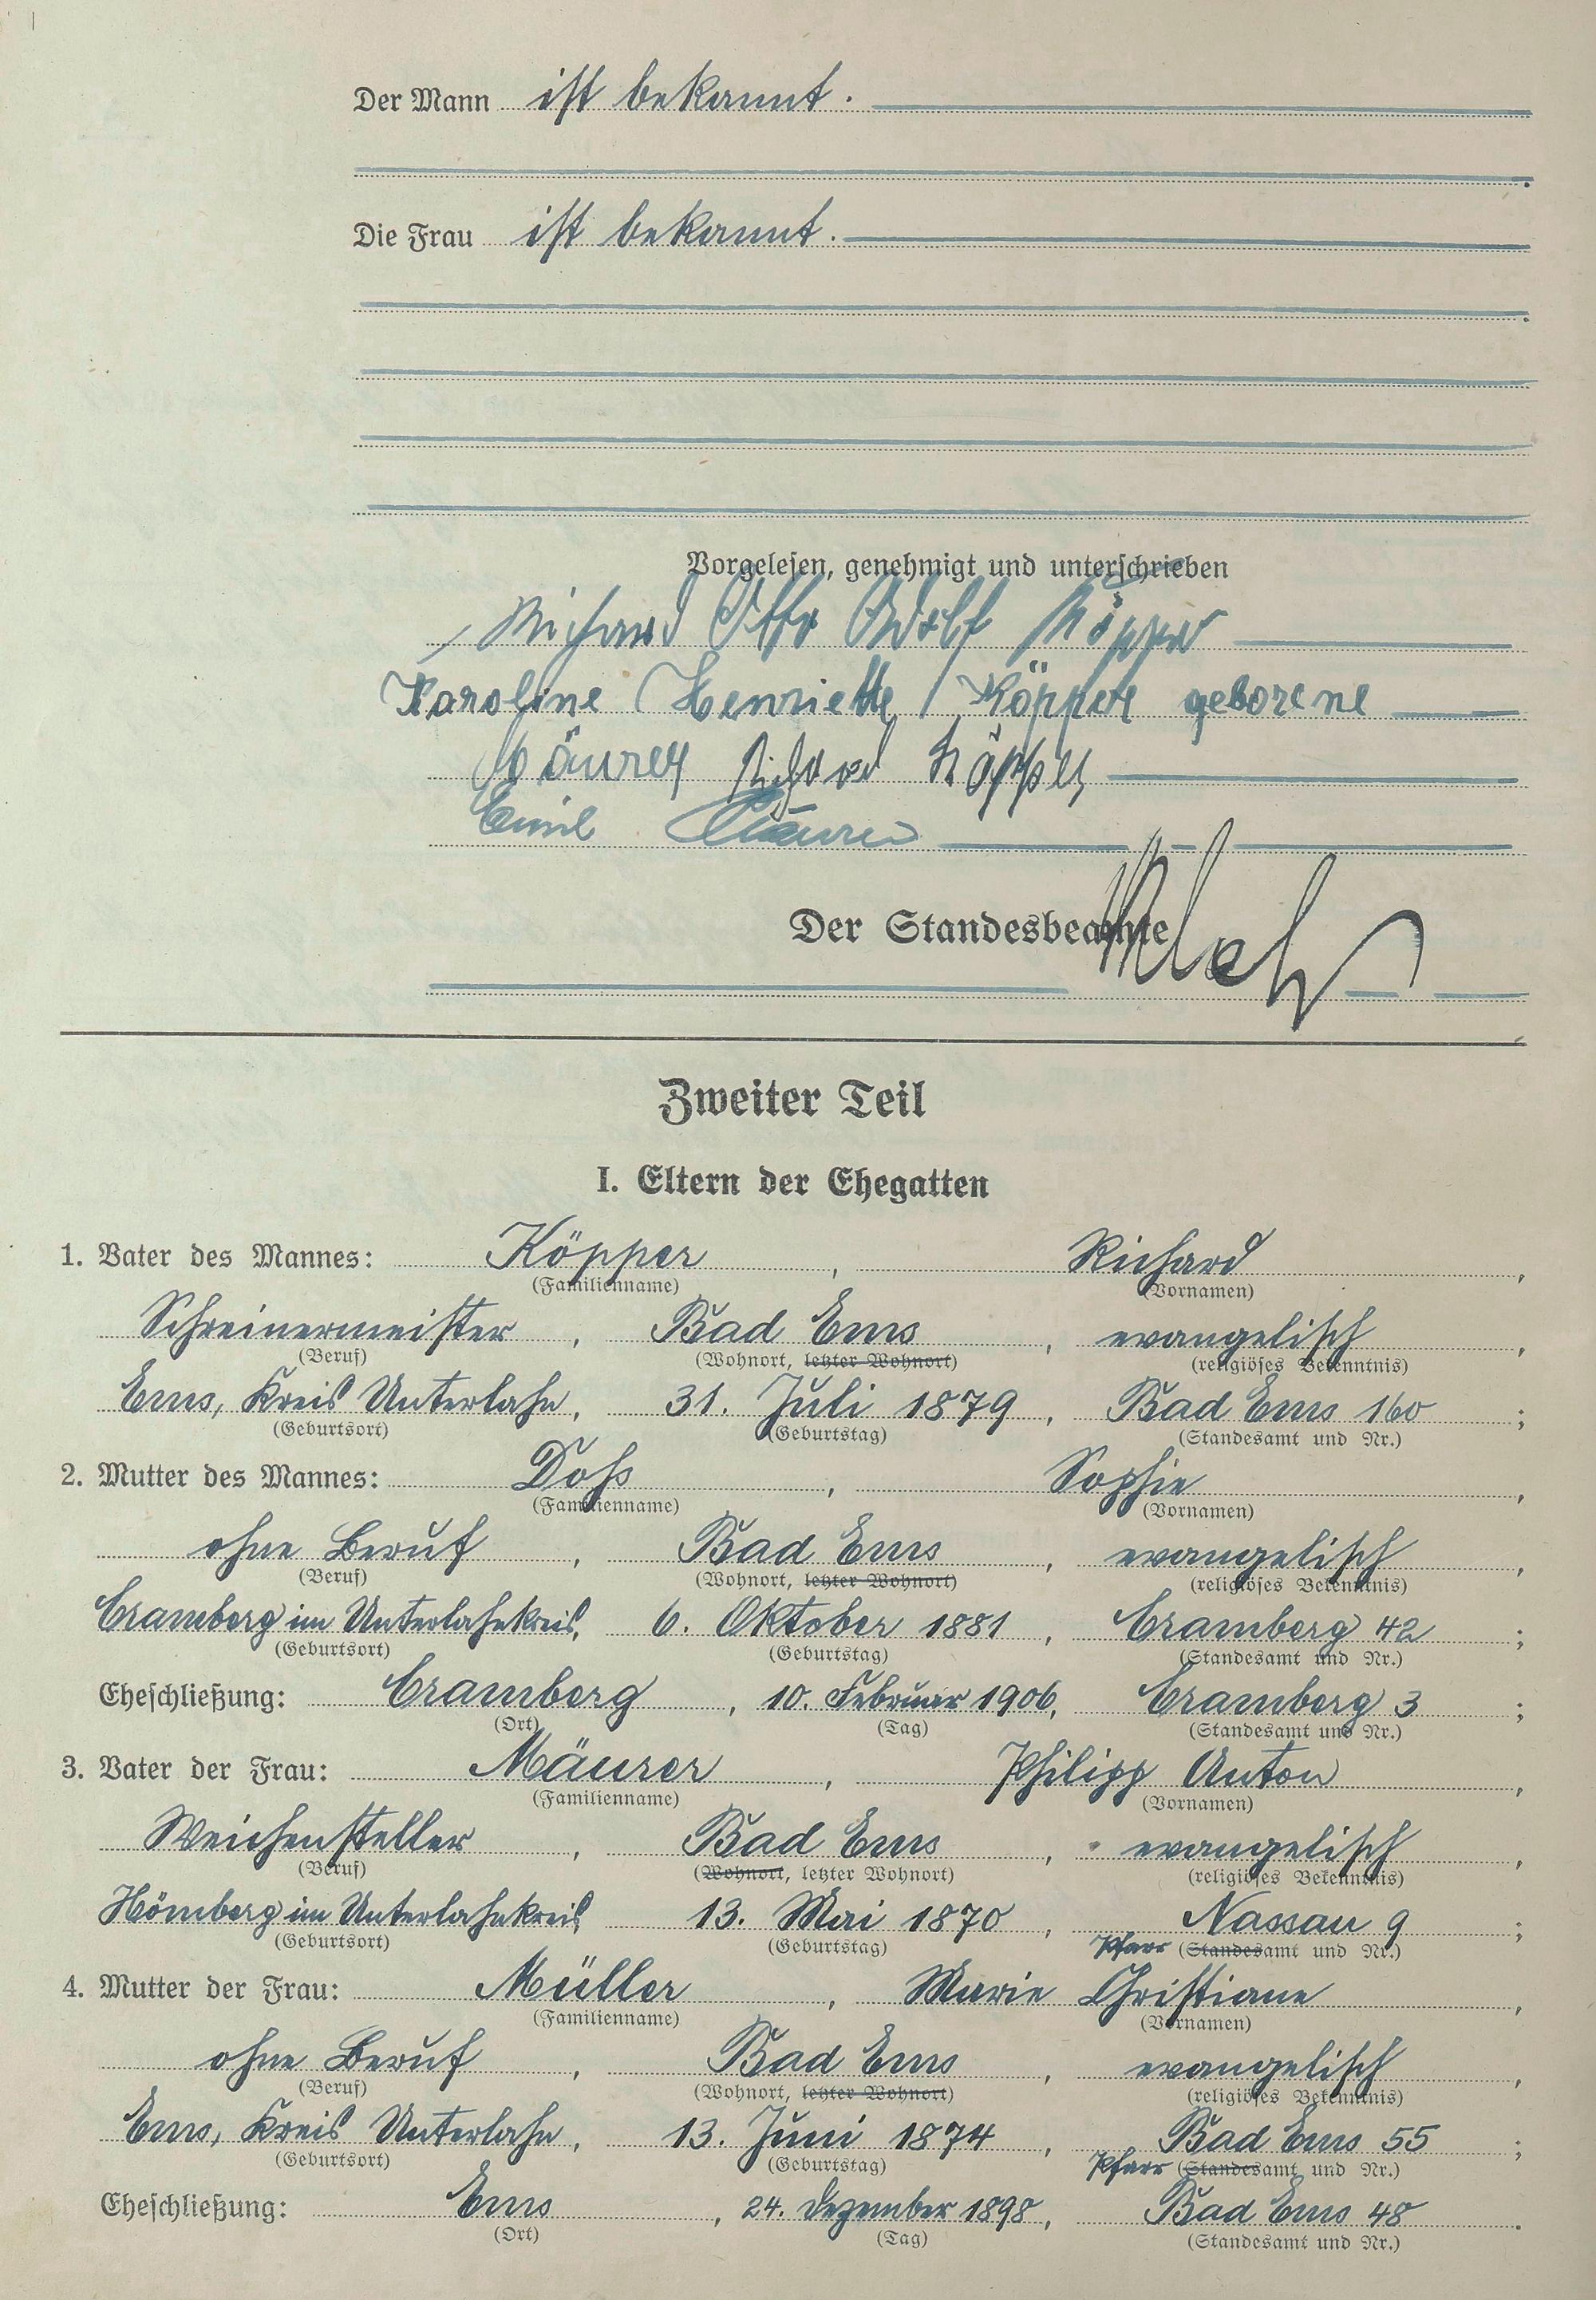 Der Mann ist bekannt.
Die Frau ist bekannt.
Vorgelesen, genehmigt und unterschrieben
Richard Otto Adolf Köpper
Karoline Henriette Köpper geborene
Mäurer Richard Köpper
Emil Mäurer
Der Standesbeamte
Zweiter Teil
I. Eltern der Ehegatten
1. Vater des Mannes: Köpper, Richard,
(Familienname) (Vornamen)
Schreinermeister, Bad Ems, evangelisch,
(Beruf) (Wohnort, letzter Wohnort) (religiöses Bekenntnis)
Ems, Kreis Unterlahn, 31. Juli 1879, Bad Ems 160;
(Geburtsort) (Geburtstag) (Standesamt und Nr.)
2. Mutter des Mannes: Doß, Sophie,
(Familienname) (Vornamen)
ohne Beruf, Bad Ems, evangelisch,
(Beruf) (Wohnort, letzter Wohnort) (religiöses Bekenntnis)
Cramberg im Unterlahnkreis, 6. Oktober 1881, Cramberg 42;
(Geburtsort) (Geburtstag) (Standesamt und Nr.)
Eheschließung: Cramberg, 10. Februar 1906, Cramberg 3;
(Ort) (Tag) (Standesamt und Nr.)
3. Vater der Frau: Mäurer, Philipp Anton,
(Familienname) (Vornamen)
Weichensteller, Bad Ems, evangelisch,
(Beruf) (Wohnort, letzter Wohnort) (religiöses Bekenntnis)
Hömberg im Unterlahnkreis 13. Mai 1870, Nassau 9;
(Geburtsort) (Geburtstag) Pfarr (Standesamt und Nr.)
4. Mutter der Frau: Müller, Marie Christiane,
(Familienname) (Vornamen)
ohne Beruf, Bad Ems, evangelisch,
(Beruf) (Wohnort, letzter Wohnort) (religiöses Bekenntnis)
Ems, Kreis Unterlahn, 13. Juni 1874, Bad Ems 55;
(Geburtsort) (Geburtstag) Pfarr (Standesamt und Nr.)
Eheschließung: Ems, 24. Dezember 1898, Bad Ems 48.
(Ort) (Tag) (Standesamt und Nr.)